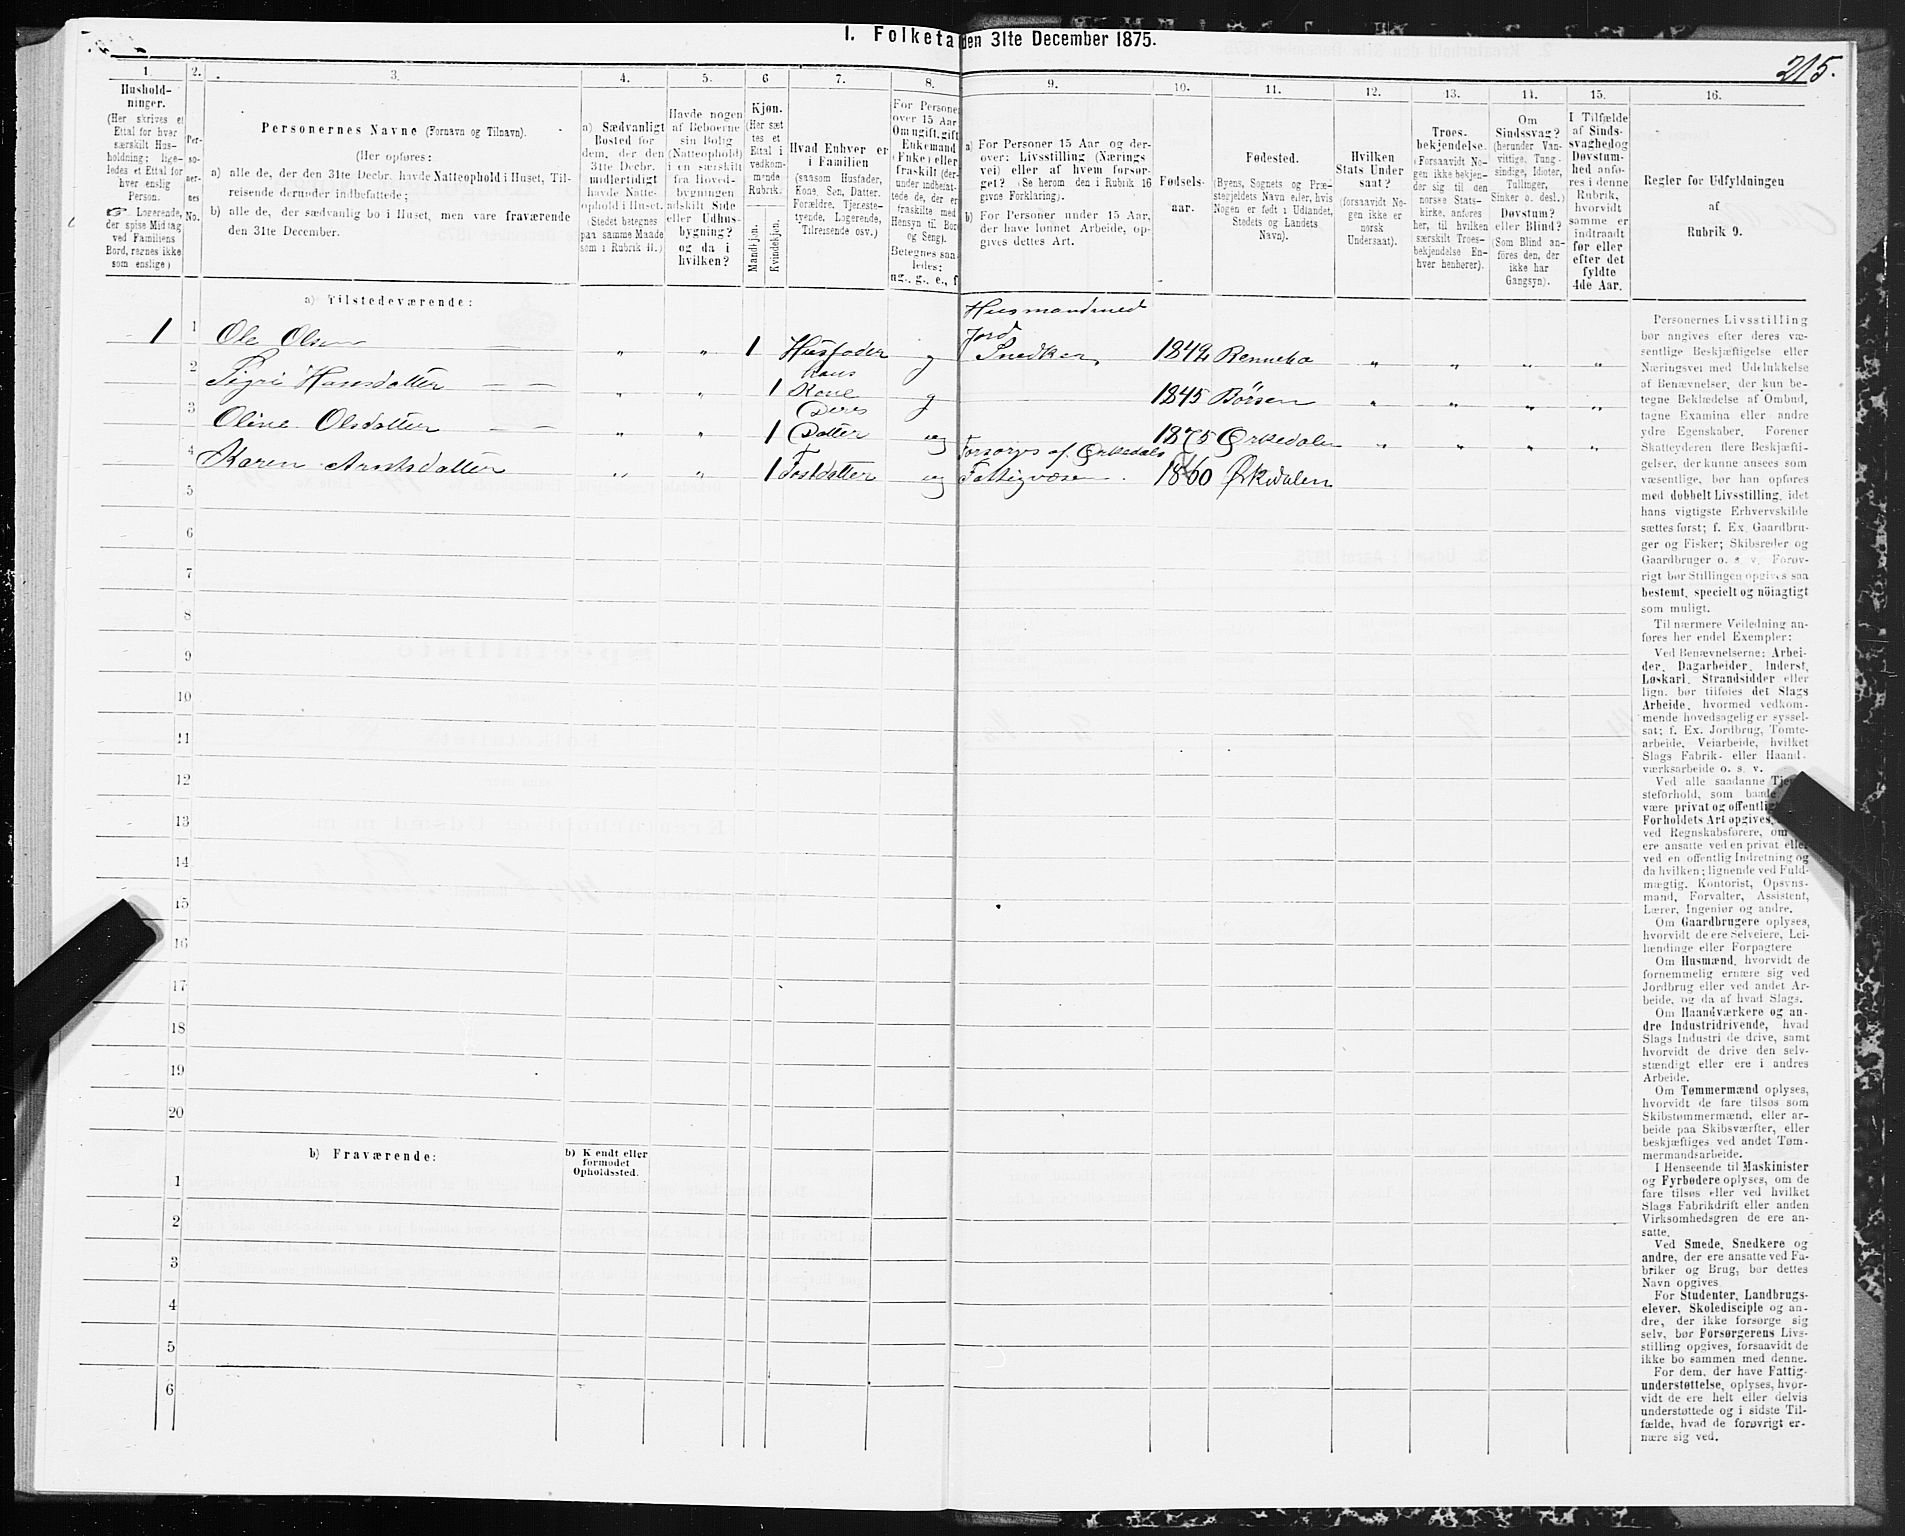 I. Folketa den 31te December 1875.
215.
1.
Hushold-
ninger.
(Her skrives et
Ettal for hver
særskilt Hus-
holdning; lige-
ledes et Ettal for
hver enslig
Person.
Logerende,
der spise Middag
ved Familiens
Bord, regnes ikke
som enslige)
2.
Per-
so-
ner-
nes
No.
3.
Personernes Navne (Fornavn og Tilnavn).
(Her opføres:
a) alle de, der den 31te Decbr. havde Natteophold i Huset, Til-
reisende derunder indbefattede;
b) alle de, der sædvanlig bo i Huset, men vare fraværende
den 31te December.
4.
a) Sædvanligt
Bosted for
dem, der den
31te Decbr.
midlertidigt
havde Natte-
ophold i Huset.
(Stedet betegnes
paa samme Maade
som i Rubrik 11.)
5.
Havde nogen
af Beboerne
sin Bolig
(Natteophold)
i en særskilt
fra Hoved-
bygningen
adskilt Side
eller Udhus-
bygning?
og da i
hvilken?
6
Kjøn.
(Her sæt
tes et
Ettal i
vedkom-
mende
Rubrik.
Mandkjøn.
Kvindekjøn.
7.
Hvad Enhver er
i Familien
(saasom Husfader,
Kone, Søn, Datter,
Forældre, Tjeneste-
tyende, Logerende,
Tilreisende osv.)
8.
For Persone
over 15 Aar
Om ugift, gift
Enkemand
(Enke) eller
fraskilt (der-
under indbefat-
tede de, der er
fraskilte med
Hensyn til Bor
og Seng).
Betegnes saa-
ledes:
ug., g., e., f
9.
a) For Personer 15 Aar og der-
over: Livsstilling (Nærings
vei) eller af hvem forsør-
get? (Se herom den i Rubrik 16
givne Forklaring).
b) For Personer under 15 Aar,
der have lønnet Arbeide, op-
gives dettes Art.
10.
Fødsels-
aar.
11.
Fødested.
(Byens, Sognets og Præ-
stegjeldets Navn eller, hvis
Nogen er født i Udlandet,
Stedets og Landets
Navn).
12.
Hvilken
Stats Under
saat?
(forsaavidt No-
gen ikke er
norsk
Undersaat).
13.
Troes-
bekjendelse.
(Forsaavidt No-
gen ikke bekjen-
der sig til den
norske Stats-
kirke, anføres
her, til hvilken
særskilt Troes-
bekjendelse En-
hver henhører).
14.
Om
Sindssvag?
(herunder Van-
vittige, Tung-
sindige, Idioter,
Tullinger,
Sinker o. desl.)
Døvstum?
eller Blind?
(Som Blind an-
føres den, der
ikke har
Gangsyn).
15.
I Tilfælde
af Sinds-
svaghed og
Døvstum-
hed anfø-
res i denne
Rubrik,
hvorvidt
samme er
indtraadt
før eller
efter det
fyldte
4de Aar.
16.
Regler for Udfyldningen
af
Rubrik 9.
a) Tilstedeværende:
Husmand med
Jord
1 1 Ole Olsen „ „ 1 Husfader g Snedker 1842 Rennebo „ „ „ „
Hans
2 Sigri Hansdatter „ „ 1 Kone g 1845 Børsen „ „ „ „
Deres
3 Oline Olsdatter „ „ 1 Datter ug 1875 Ørkedalen „ „ „ „
Forsørges af Ørkedals
4 Karen Arntsdatter „ „ 1 Fostdatter ug Fattigvæsen. 1860 Ørkdalen
5
6
7
8
9
10
11
12
13
14
15
16
17
18
19
20
b) Fraværende:
b) Kjendt eller
formodet
Opholdssted.
1
2
3
4
5
6
Personernes Livsstilling
bør angives efter deres væ-
sentlige Beskjæftigelse eller
Næringsvei med Udelukkelse
af Benævnelser, der kun be-
tegne Beklædelse af Ombud,
tagne Examina eller andre
ydre Egenskaber. Forener
Skatteyderen flere Beskjæfti-
gelser, der kunne ansees som
væsentlige, bør han opføres
med dobbelt Livsstilling, idet
hans vigtigste Erhvervskilde
sættes først; f. Ex. Gaardbru-
ger og Fisker; Skibsreder og
Gaardbruger o. s. v. Forøv-
rigt bør Stillingen opgives saa
bestemt, specielt og nöiagtigt
som muligt.
Til nærmere Veiledning an-
føres her endel Exempler:
Ved Benævnelserne: Arbei-
der, Dagarbeider, Inderst,
Løskarl, Strandsidder eller
lign. bør tilføies det Slags
Arbeide, hvormed vedkom-
mende hovedsagelig er syssel-
sat; f. Ex. Jordbrug, Tomte-
arbeide, Veiarbeide, hvilket
Slags Fabrik- eller Haand-
værksarbeide o. s. v.
Ved alle saadanne Tje
steforhold, som baade
være privat og offentligt
Forholdets Art opgives,
ved Regnskabsførere, om
ere ansatte ved en privat eller
ved en offentlig Indretning og
da hvilken; lignende ved Fuld-
mægtig, Kontorist, Opsyns-
mand, Forvalter, Assistent,
Lærer, Ingeniør og andre.
Om Gaardbrugere oplyses,
hvorvidt de ere Selveiere, Lei-
lændinge eller Forpagtere
Om Husmænd, hvorvidt de
fornemmelig ernære sig ved
Jordbrug eller ved andet Ar-
beide, og da af hvad Slags.
Om Haandværkere og an-
dre Industridrivende, hvad
Slags Industri de drive, samt
hvorvidt de drive den selv-
stændigt eller ere i andres
Arbeide.
Om Tømmermænd oplyses,
hvorvidt de fare tilsøs som
Skibstømmermænd, eller ar-
beide paa Skibsværfter, eller
beskjæftiges ved andet Tøm-
mermandsarbeide.
I Henseende til Maskinister
og Fyrbødere oplyses, om de
fare tilsøs eller ved hvilket
Slags Fabrikdrift eller anden
Virksomhedsgren de ere an-
satte.
Ved Smede, Snedkere og
andre, der ere ansatte ved Fa-
briker og Brug, bør dettes
Navn opgives
For Studenter, Landbrugs-
elever, Skoledisciple og an-
dre, der ikke forsørge sig
selv, bør Forsørgerens Livs-
stilling opgives, forsaavidt de
ikke bo sammen med denne.
For dem, der have Fattig-
understøttelse, oplyses, hvor-
vidt de ere helt eller delvis
understøttede og i sidste Til-
fælde, hvad de forøvrigt er-
nære sig ved.